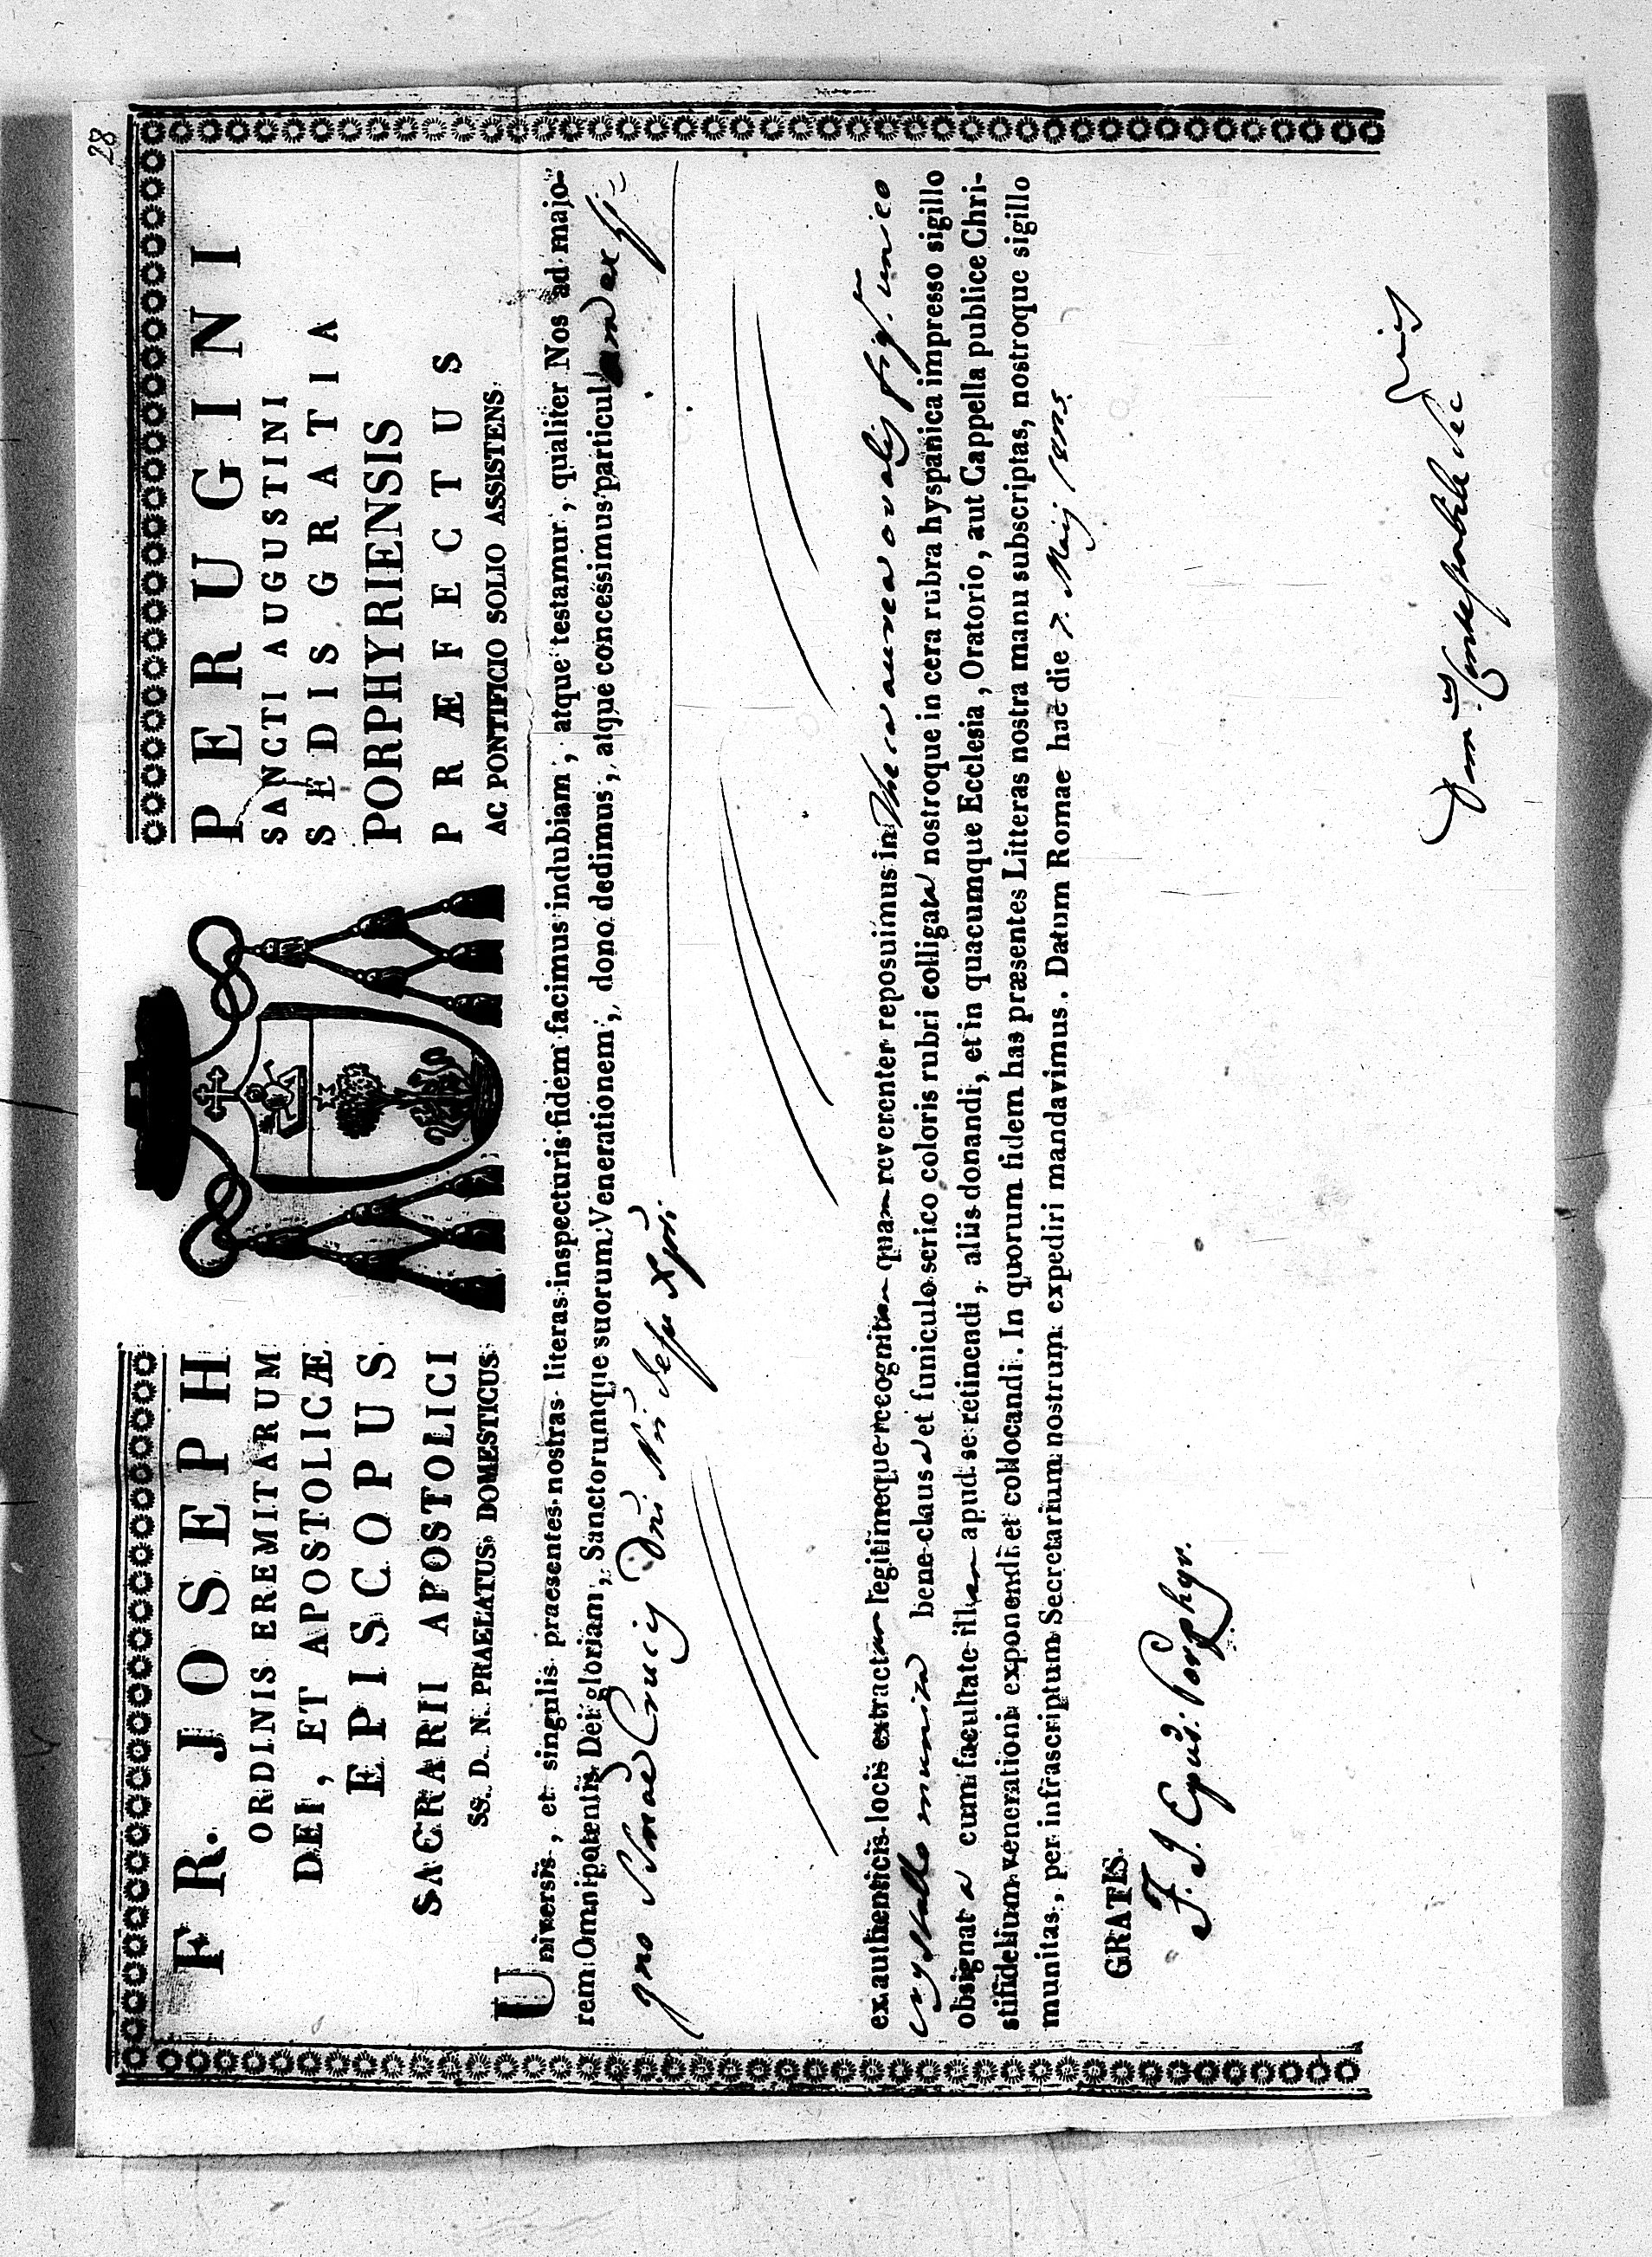 28
FR. JOSEPH PERUGINI
ORDINIS EREMITARUM SANCTI AUGUSTINI
DEI, ET APOSTOLICÆ SEDIS GRATIA
EPISCOPUS PORPHYRIENSIS
SACRARII APOSTOLICI PRÆFECTUS
SS. D. N. PRAELATUS DOMESTICUS AC PONTIFICIO SOLIO ASSISTENS
Universis, et singulis praesentes nostras literas inspecturis fidem facimus indubiam, atque testamur, qualiter Nos ad majo-
rem Omnipotentis Dei gloriam, Sanctorumque suorum Venerationem, dono dedimus, atque concessimus particulam ex li-
gno SSmae Crucis Dni Nri Jesu Xpti.
ex authenticis locis extractam legitimeque recognitam quam reverenter reposuimus in Theca aurea ovalis fig. unico
crystallo munita bene clausa et funiculo serico coloris rubri colligata nostroque in cera rubra hyspanica impresso sigillo
obsignata cum facultate illam apud se retinendi, aliis donandi, et in quacumque Ecclesia, Oratorio, aut Cappella publice Chri-
stifidelium venerationi exponendi et collocandi. In quorum fidem has praesentes Litteras nostra manu subscriptas, nostroque sigillo
munitas, per infrascriptum Secretarium nostrum expediri mandavimus. Datum Romae hac die 7. Maij
GRATIS.
F. J. Epus. Porphyr.